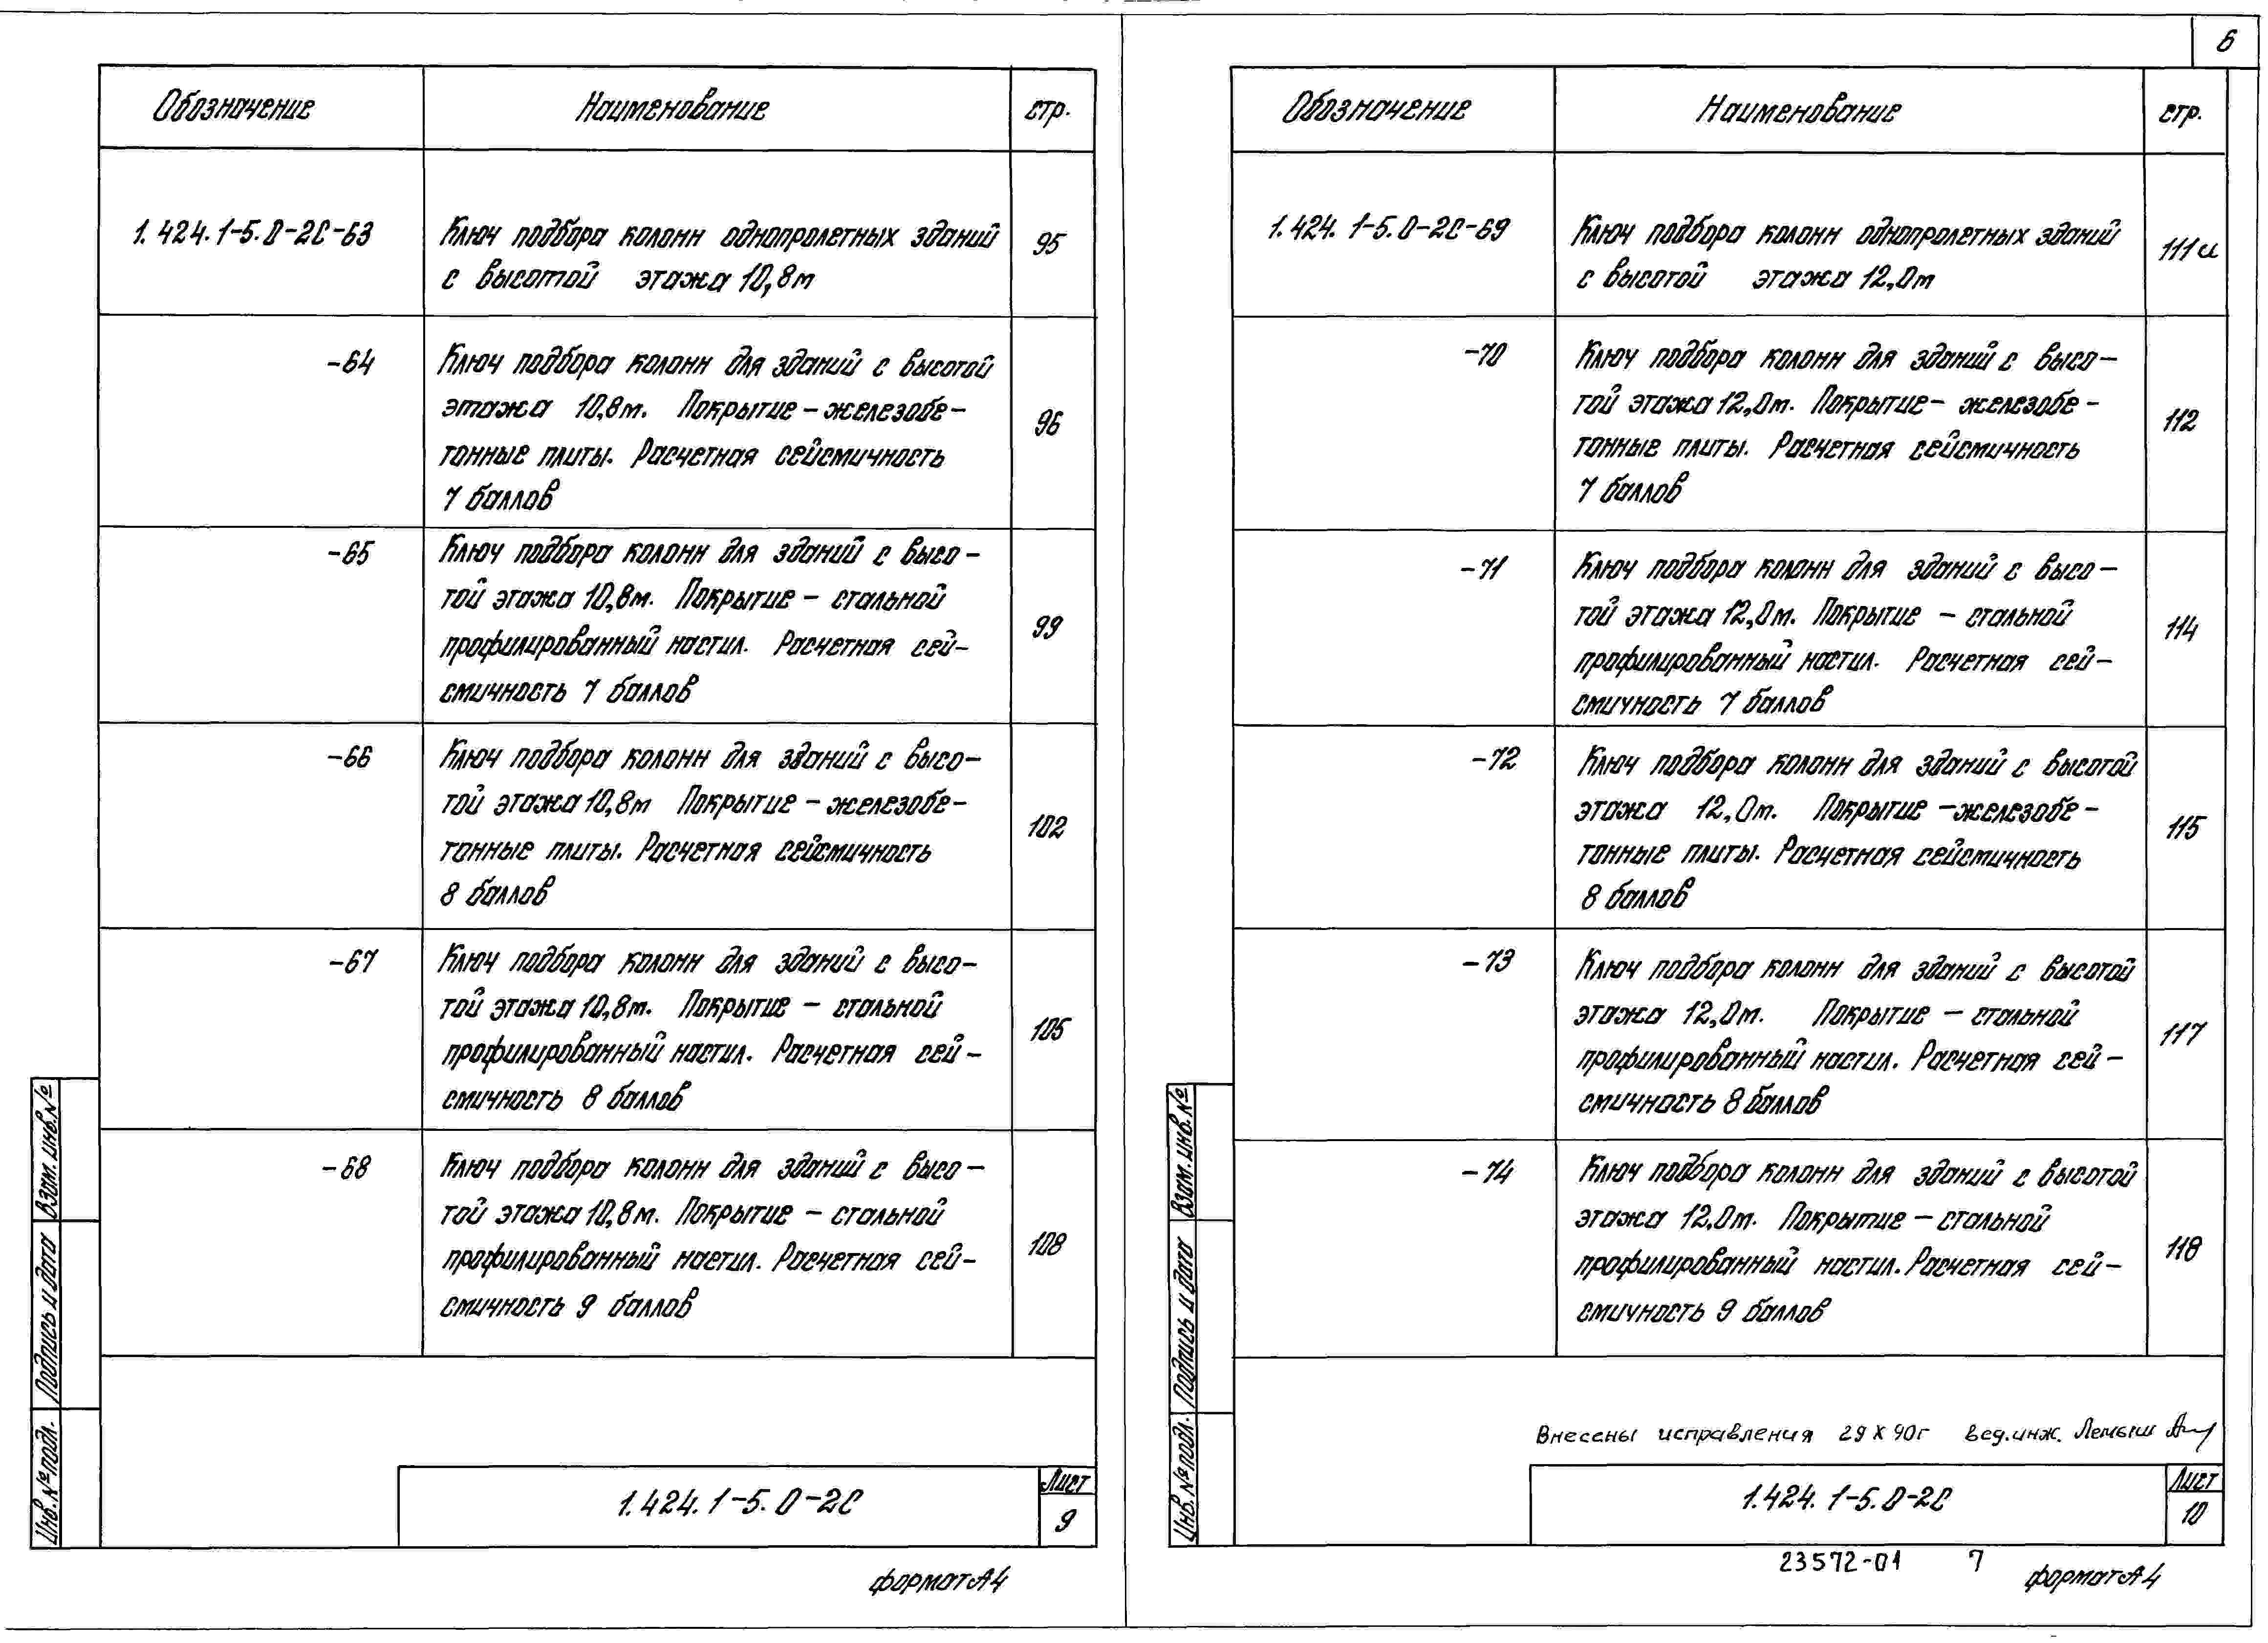 Обозначение Наименование стр.
1.424.1-5.0-2С-63 Ключ подбора колонн однопролетных зданий 95
с высотой этажа 10,8м
-64 Ключ подбора колонн для зданий с высотой 96
этажа 10,8м. Покрытие - железобе-
тонные плиты. Расчетная сейсмичность
7 баллов
-65 Ключ подбора колонн для зданий с высо- 99
той этажа 10,8м. Покрытие - стальной
профилированный настил. Расчетная сей-
смичность 7 баллов
-66 Ключ подбора колонн для зданий с высо- 102
той этажа 10,8м Покрытие - железобе-
тонные плиты. Расчетная сейсмичность
8 баллов
-67 Ключ подбора колонн для зданий с высо- 105
той этажа 10,8м. Покрытие - стальной
профилированный настил. Расчетная сей-
смичность 8 баллов
-68 Ключ подбора колонн для зданий с высо- 108
той этажа 10,8м. Покрытие - стальной
профилированный настил. Расчетная сей-
смичность 9 баллов
Взам. инв. №
Подпись и дата
Инв. № подл.
1.424.1-5.0-2С
Лист
9
формат А4
6
Обозначение Наименование стр.
1.424.1-5.0-2С-69 Ключ подбора колонн однопролетных зданий 111и
с высотой этажа 12,0м
-70 Ключ подбора колонн для зданий с высо- 112
той этажа 12,0м. Покрытие - железобе-
тонные плиты. Расчетная сейсмичность
7 баллов
-71 Ключ подбора колонн для зданий с высо- 114
той этажа 12,0м. Покрытие - стальной
профилированный настил. Расчетная сей-
смичность 7 баллов
-72 Ключ подбора колонн для зданий с высотой 115
этажа 12,0м. Покрытие - железобе-
тонные плиты. Расчетная сейсмичность
8 баллов
-73 Ключ подбора колонн для зданий с высотой 117
этажа 12,0м. Покрытие - стальной
профилированный настил. Расчетная сей-
смичность 8 баллов
-74 Ключ подбора колонн для зданий с высотой 118
этажа 12.0м. Покрытие - стальной
профилированный настил. Расчетная сей-
смичность 9 баллов
Взам. инв. №
Подпись и дата
Инв. № подл.
Внесены исправления 29 X 90г вед.инж. Лемыш
1.424.1-5.0-2С
Лист
10
23572-01 7
формат А4